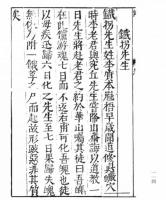 鐵拐先生
鐵拐先生姓李質本魁梧早歲聞道修真巖穴
時李老君與宛丘先生嘗降山齋誨以道教一
日先生將赴老君之約於華山囑其徒曰吾魄
在此倘游魂七日而不返若甫可化吾魄也徒
以母疾迅歸六日化之先生至七日果歸失魄
無依乃附一餓莩之尸而起故形跛惡非其質